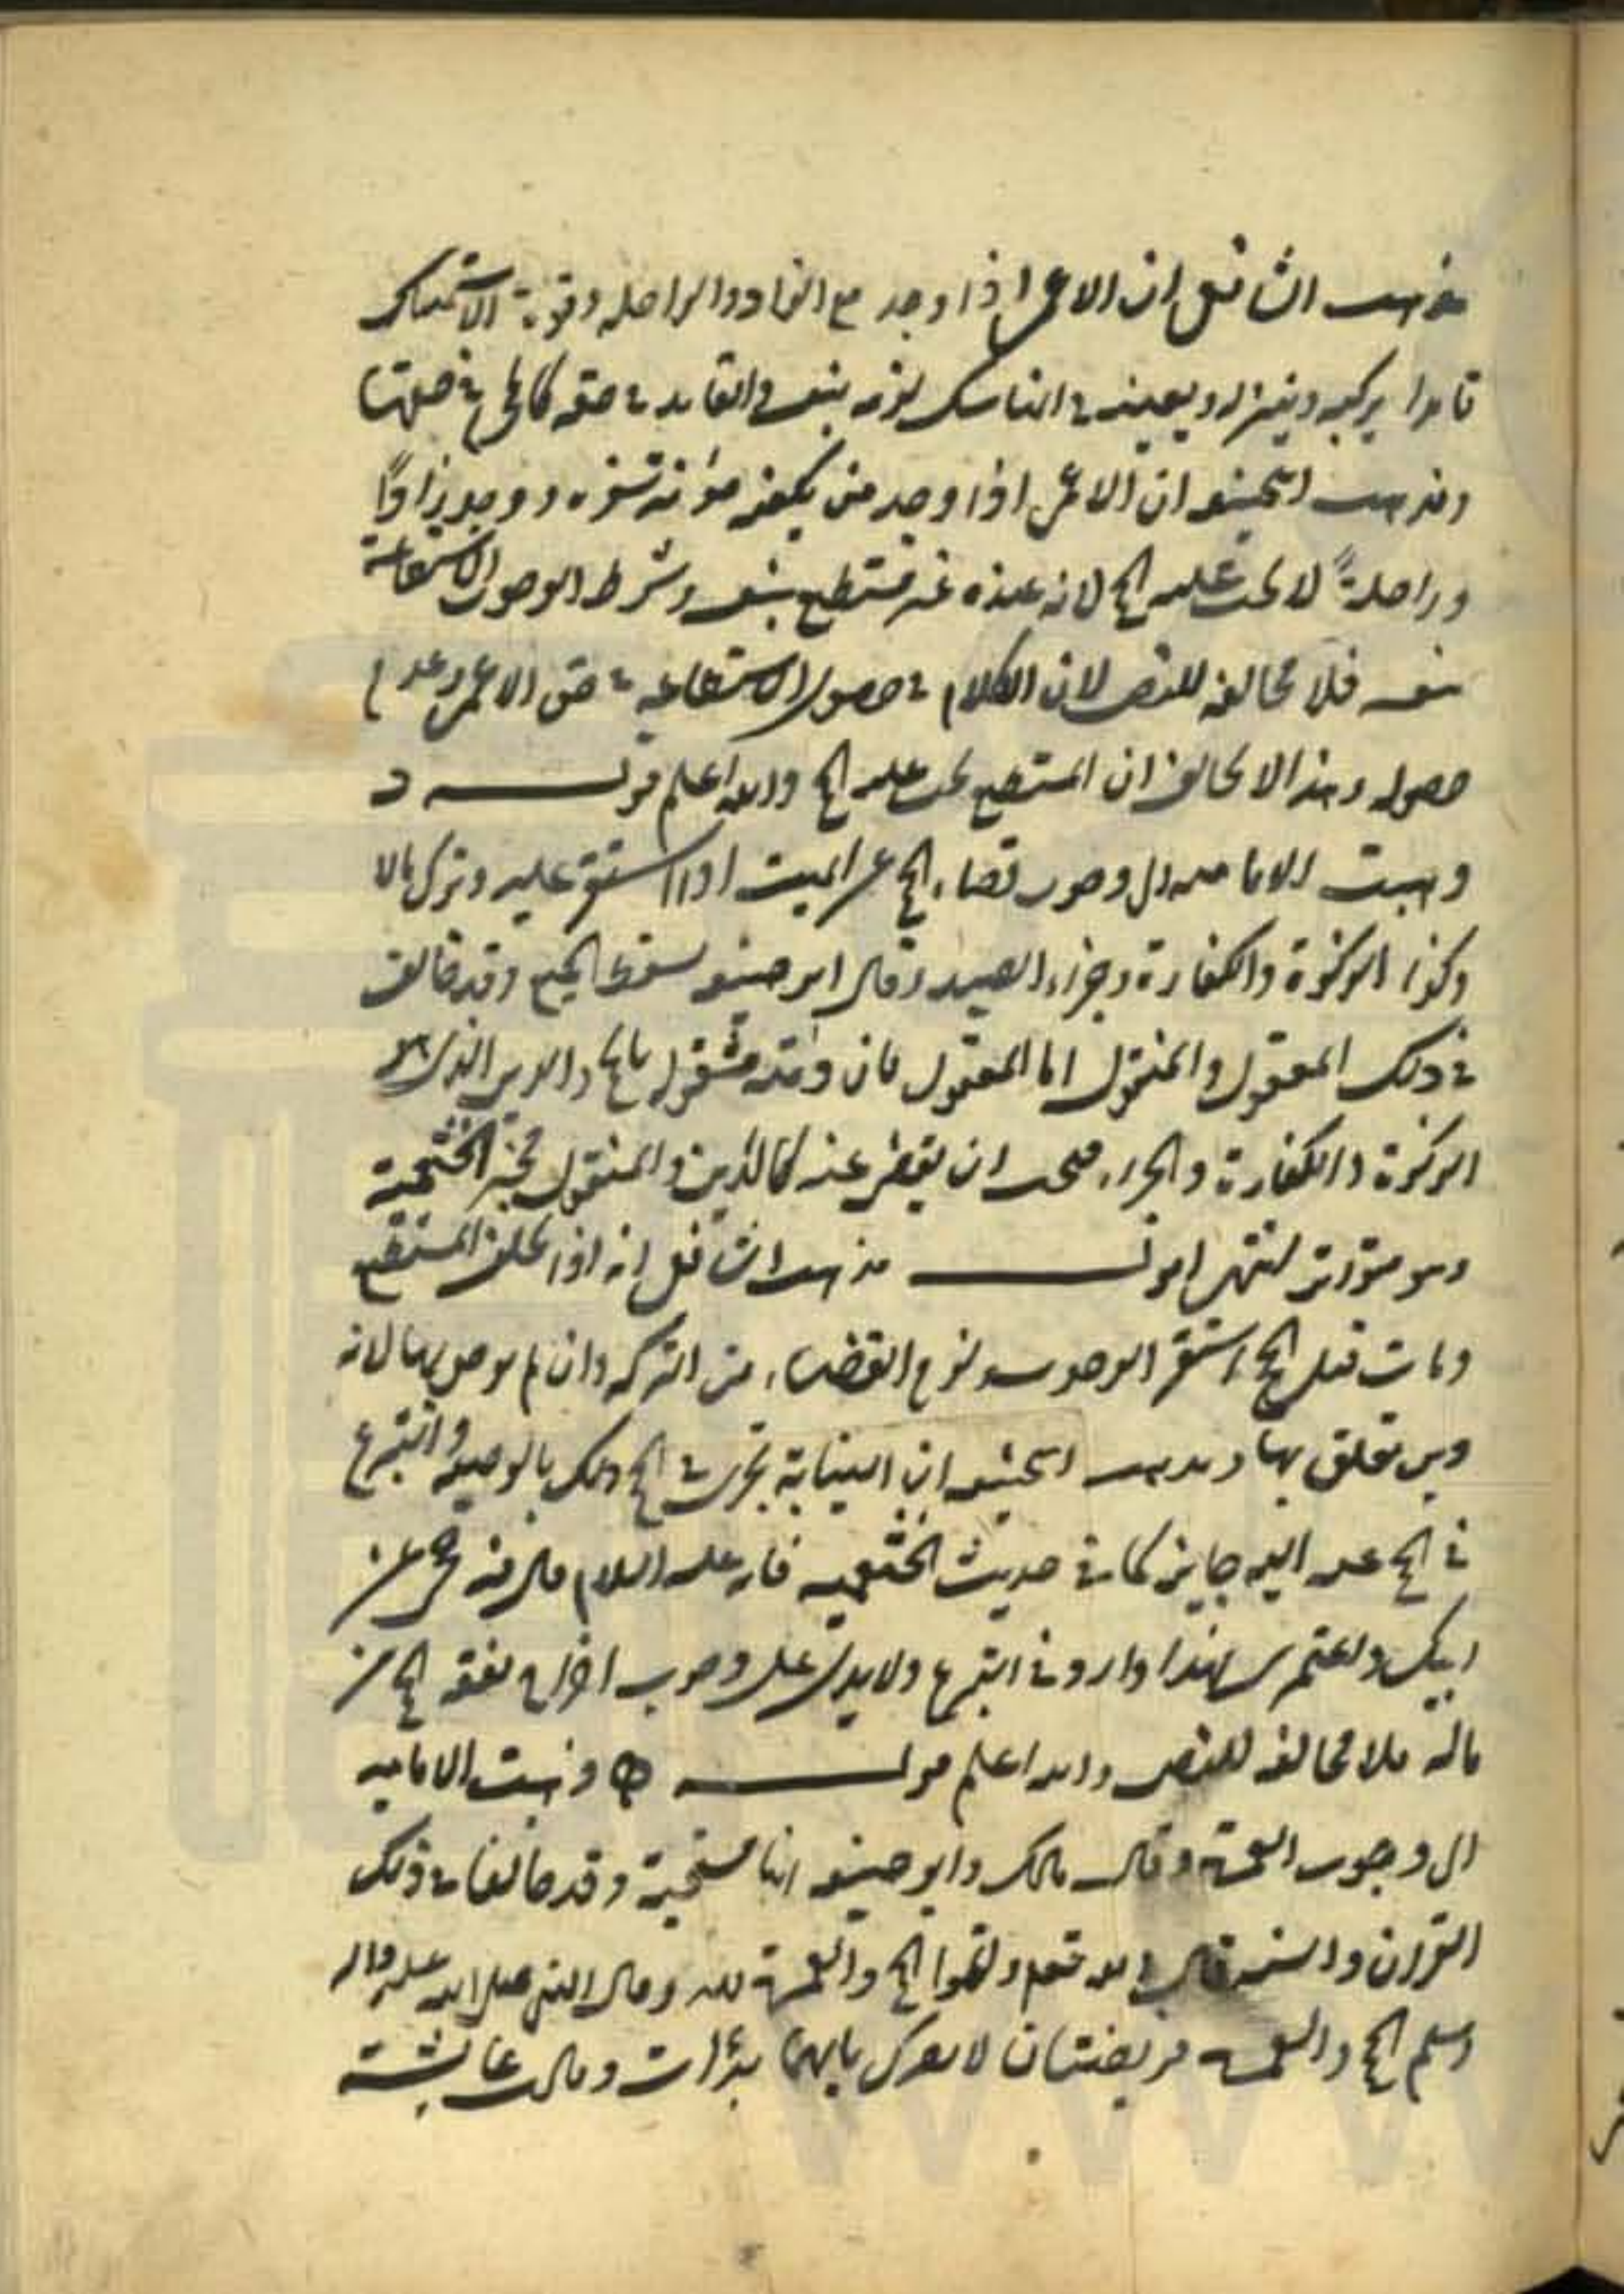 مذهب الشافعي ان الاعمى اذا وجد مع الزاد والراحله وقوة الاستمساك
قايدا يركبه وينزله ويعينه في المناسك لزمه بنفسه والقايد في حقه كالمحرم في حقها
ومذهب الحنيفه ان الاعمى اذا وجد من يكفيه مؤنة سفره ووجد زاداً
وراحلةً لا يجب عليه الحج لانه عنده غير مستطيع بنفسه وشرط الوجوب الاستطاعة
بنفسه فلا مخالفه للنص لان الكلام في حصول الاستطاعه في حق الاعمى وعدم
حصوله وهذا لا يخالف ان المستطيع يجب عليه الحج والله اعلم قولـــه د
وهبت الاماميه الى وجوب قضاء الحج عن الميت اذا استقر عليه وترك مالا
وكذا الزكوة والكفارة وجزاء الصيد وقال ابو حنيفه يسقط الجميع وقد خالف
في ذلك المعقول والمنقول اما المعقول فان ذمته مشغوله بالحج والدين الذي هو
الزكوة والكفارة والجزاء فيجب ان يقضى عنه كالدين والمنقول خبر الخثعمية
وهو متواتر انتهى اقولـــه مذهب الشافعي انه اذا تخلف المستطيع
ومات قبل الحج استقر الوجوب ولزم القضاء من التركه وان لم يوص بها لانه
دين تعلق بها ومذهب الحنيفه ان النيابة تجرى في الحج ذلك بالوصيه والتبرع
في الحج عند اليه جايز كما في حديث الخثعميه فانه عليه السلام قال فيه حجي عن
ابيك واعتمري فهذا وارد في التبرع ولا يدل على وجوب اخراج نفقه الحج من
ماله فلا مخالفه للنص والله اعلم قولـــه وذهبت الاماميه
الى وجوب العمرة وقال مالك وابو حنيفه انها مستحبة وقد خالفا في ذلك
القران والسنه قال الله تعلى واتموا الحج والعمرة لله وقال النبي صلى الله عليه واله
وسلم الحج والعمرة فريضتان لا يضرك بايهما بدأت وقالت عايشة